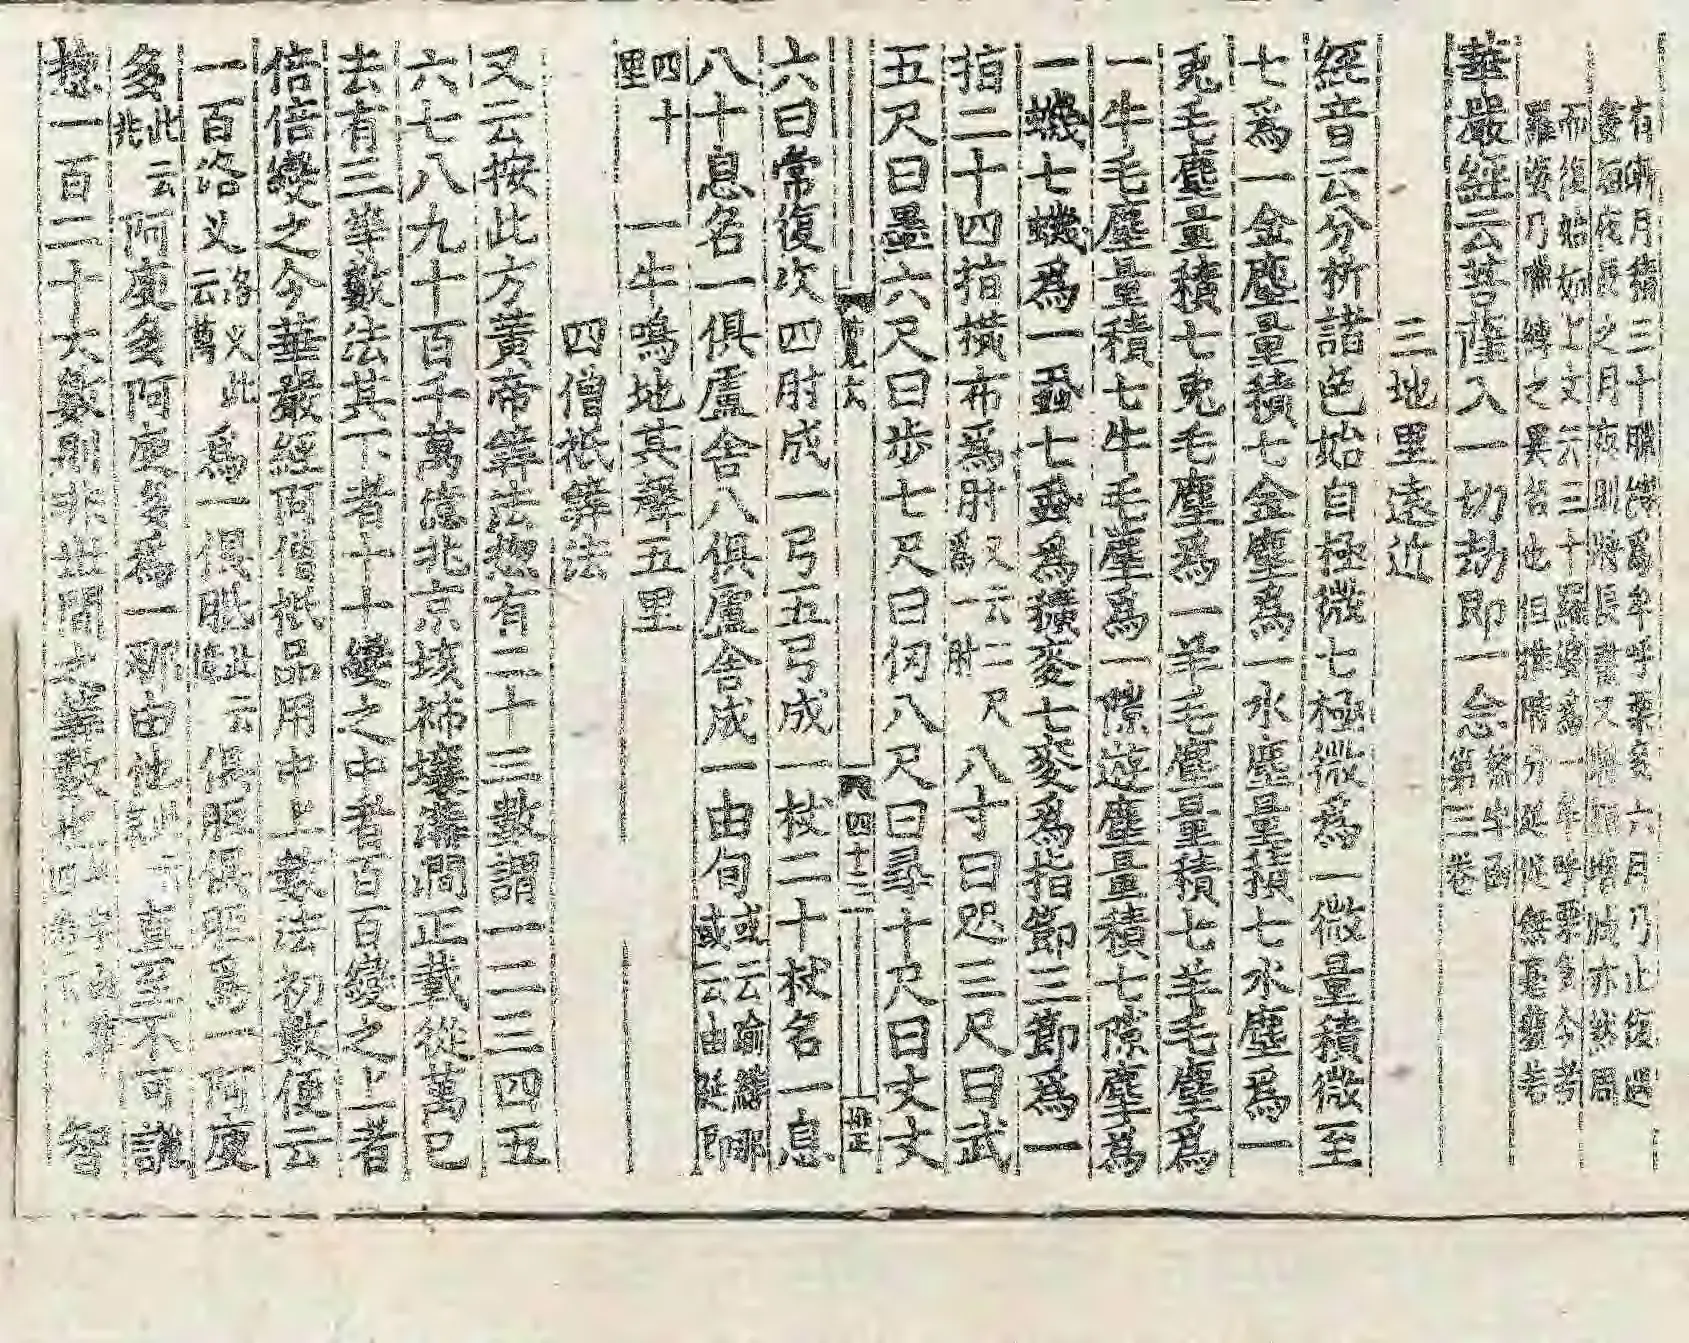 有斬月積三十臘縛爲牟呼栗多六月乃止復遇
晝極夜長之月夜則漸長晝又漸短增減亦然周
而復始如上文云三十羅婆爲一牟呼栗多今若
羅婆乃臘縛之異名也但推時分延促無毫釐若
華嚴經云菩薩入一切劫即一念
第三卷
三地里遠近
經音云分析諸色始自極微七極微爲一微量積微至
七爲一金塵量積七金塵爲一水塵量積七水塵爲一
兎毛塵量積七兎毛塵爲一羊毛塵量積七羊毛塵爲
一牛毛塵量積七牛毛塵爲一隙遊塵量積七隙塵爲
一蟣七蟣爲一蝨七蝨爲穬麥七麥爲指節三節爲一
指二十四指橫布爲肘又云二尺爲一肘八寸曰咫三尺曰武
五尺曰墨六尺曰步七尺曰仞八尺曰尋十尺曰丈丈
四十三
六曰常復次四肘成一弓五弓成一杖二十杖名一息
八十息名一俱盧舍八俱盧舍成一由旬或云踰繕那或云由延即
四十里一牛鳴地其聲五里
四僧祇筭法
又云按此方黃帝筭法揔有二十三數謂一二三四五
六七八九十百千萬億兆京垓秭壤溝澗正載從萬已
去有三等數法其下者十十變之中者百百變之上者
倍倍變之今華嚴經阿僧祇品用中上數法初數便云
一百洛义洛义此云萬爲一俱胝此云億俱胝俱胝爲一阿庾
多此云兆阿庾多阿庾多爲一那由他此云直至不可說
揔一百二十大數則非世間之筭數 智